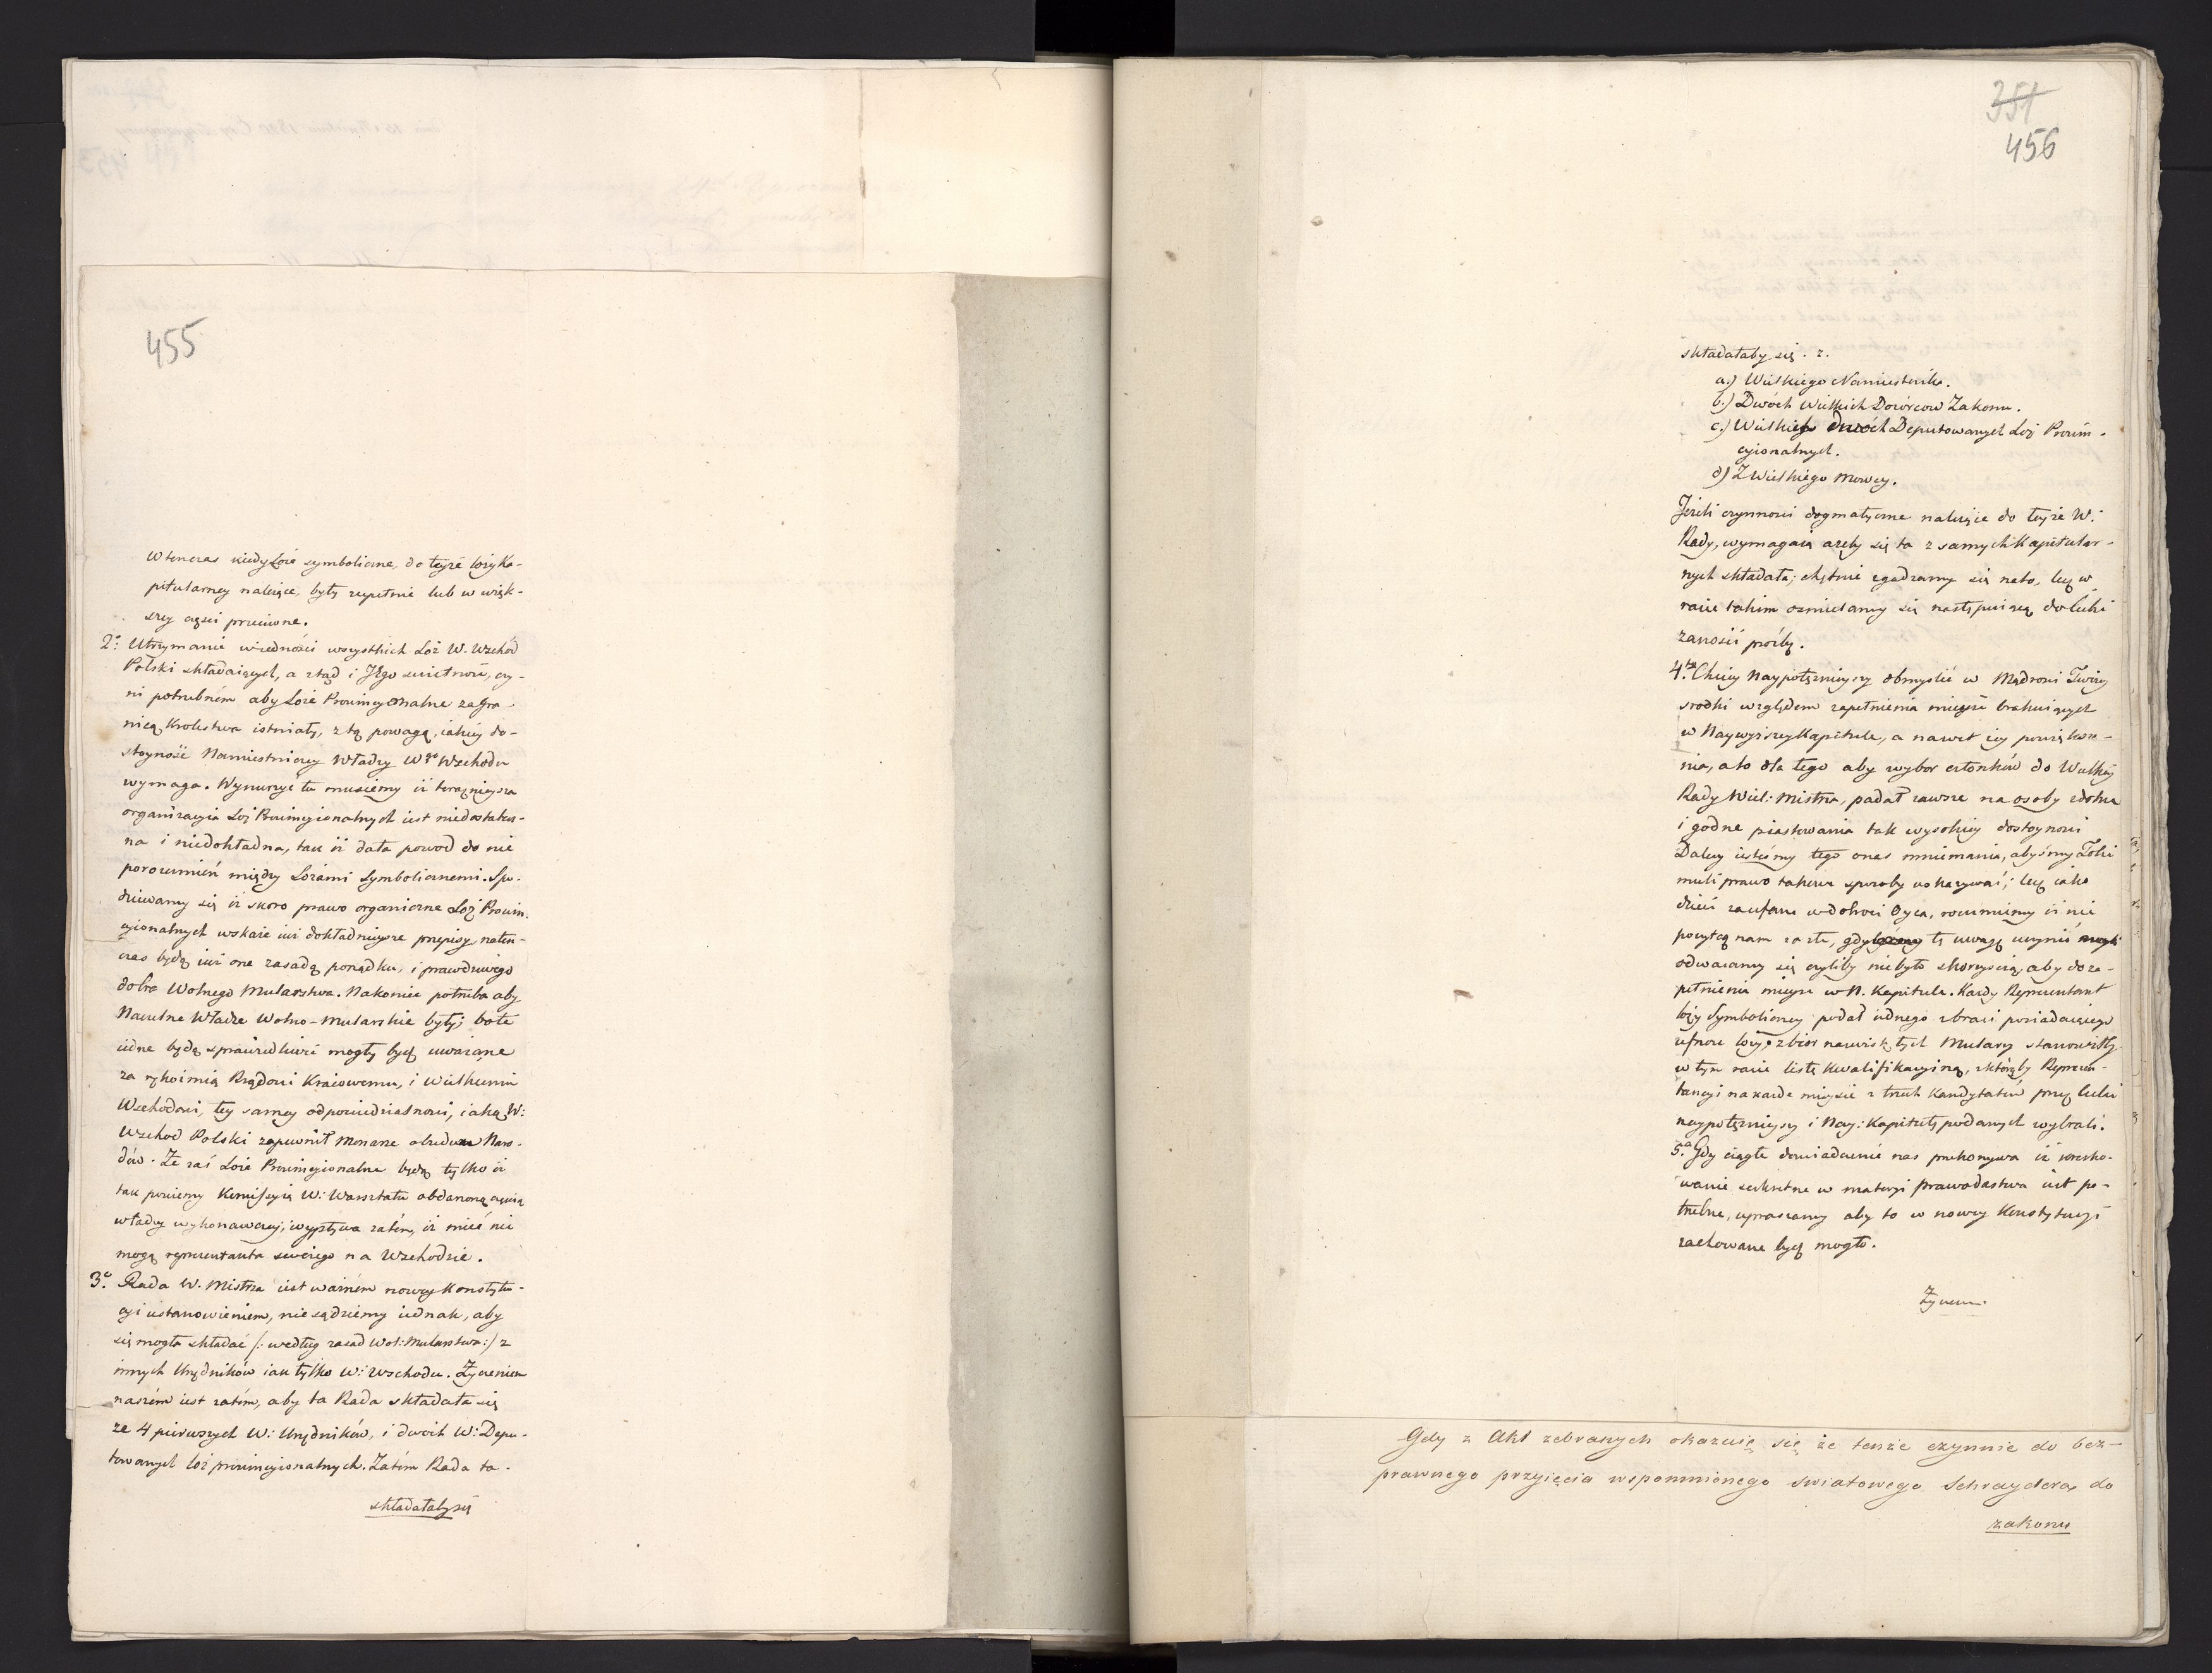 455
Wtenczas kiedy Loże symboliczne, do teyże loży Ka-
pitularney należące, były zupełnie lub w więk-
szey części przeciwne.
2° Utrzymanie w iedności wszystkich Loż W. Wschód
Polski składaiących, a ztąd i Jego świetność, czy-
ni potrzebném aby Loże Prowincyonalne zagra-
nicą Krolestwa istniały, z tą powagą, iakiéy do-
stoyność Namiestniczey Władzy Wgo Wschodu
wymaga. Wynurzyć tu musiemy iż teraznieysza
organizacyia Loż Prowincyionalnych iest niedostatecz-
na i niedokładna, tak iż dała powod do nie
porozumień między Lożami Symbolicznemi. Spo-
dziewamy się iż skoro prawo organiczne Loż Prowin-
cyionalnych wskaże iuż dokładnieysze przepisy, naten-
czas będą iuż one zasadą porządku, i prawdziwego
dobra Wolnego Mularstwa. Nakoniec potrzeba aby
Naczelne Władze Wolno-Mularskie były; bo te
iedne będą sprawiedliwie mogły być uważane
za rękoimią Rządowi Kraiowemu, i Wielkiemu
Wschodowi, tey samey odpowiedzialności, iaką W:
Wschod Polski zapewnił Monarsze obudwu Naro-
dów. Że zaś Loże Prowincyionalne będą tylko iż
tak powiemy Kommissyią W: Warsztatu obdarzoną częścią
władzy wykonawczey; wypływa zatém, iż mieć nie
mogą reprezentanta swoiego na Wschodzie.
3° Rada W. Mistrza iest ważném nowey Konstytu-
cyi ustanowieniem, nie sądziemy iednak, aby
się mogła składać /: według zasad Wol: Mularstwa:/ z
innych Urzędników iak tylko W: Wschodu. Życzeniem
naszém iest zatém, aby ta Rada składała się
ze 4 pierwszych W: Urzędników, i dwóch W: Depu-
towanych loż prowincyionalnych. Zatém Rada ta-
składałaby się
351
456
składałaby się. z.
a.) Wielkiego Namiestnika.
b.) Dwóch Wielkich Dozorcow Zakonu.
c.) Wielkich dwóch Deputowanych Loż Prowin-
cyionalnych.
d) Z Wielkiego Mowcy.
Jeżeli czynności dogmatyczne należące do teyże W:
Rady, wymagaią ażeby się ta z samych Kapitular-
nych składała; chętnie zgadzamy się na to, lecz w
razie takim ośmielamy się następuiącą do Ciebie
zanosić prośbę.
4to Chciey Naypotężnieyszy obmyslić w Mądrości Twoiey
srodki względem zapełnienia mieysc brakuiących
w Naywyższey Kapitule, a nawet iey powiększe-
nia, a to dla tego aby wybor członków do Wielkiey
Rady Wiel: Mistrza, padał zawsze na osoby zdolne
i godne piastowania tak wysokiey dostoyności
Dalecy iesteśmy tego o nas mniemania, abyśmy Tobie
mieli prawo takowe sposoby wskazywać; lecz iako
dzieci zaufane w dobroci Oyca, rozumiemy iż nie
poczytasz nam za złe, gdy tę uwagę uczynić
odważamy się czyliby niebyło skorzyścią, aby do za-
pełnienia mieysc w N. Kapitule. Każdy Reprezentant
loży Symboliczney podał iednego z braci posiadaiącego
ufność loży; zbior nazwisk tych Mularzy stanowiłby
w tym razie listę kwalifikacyiną, z któréyby Reprezen-
tancyi na każde mieysce z trzech Kandydatów przez Ciebie
naypotężnieyszy i Nay: Kapitułę podanych wybrali.
5ta Gdy ciągłe doświadczenie nas przekonywa iż wotowa-
wanie sekretne w materyi prawodastwa iest po-
trzebne, upraszamy aby to w nowey Konstytucyi
zachowane być mogło.
Gdy z Akt zebranych okazuię się że tenże czynnie do bez-
prawnego przyięcia wspomnionego światowego Schraydera do
zakonu